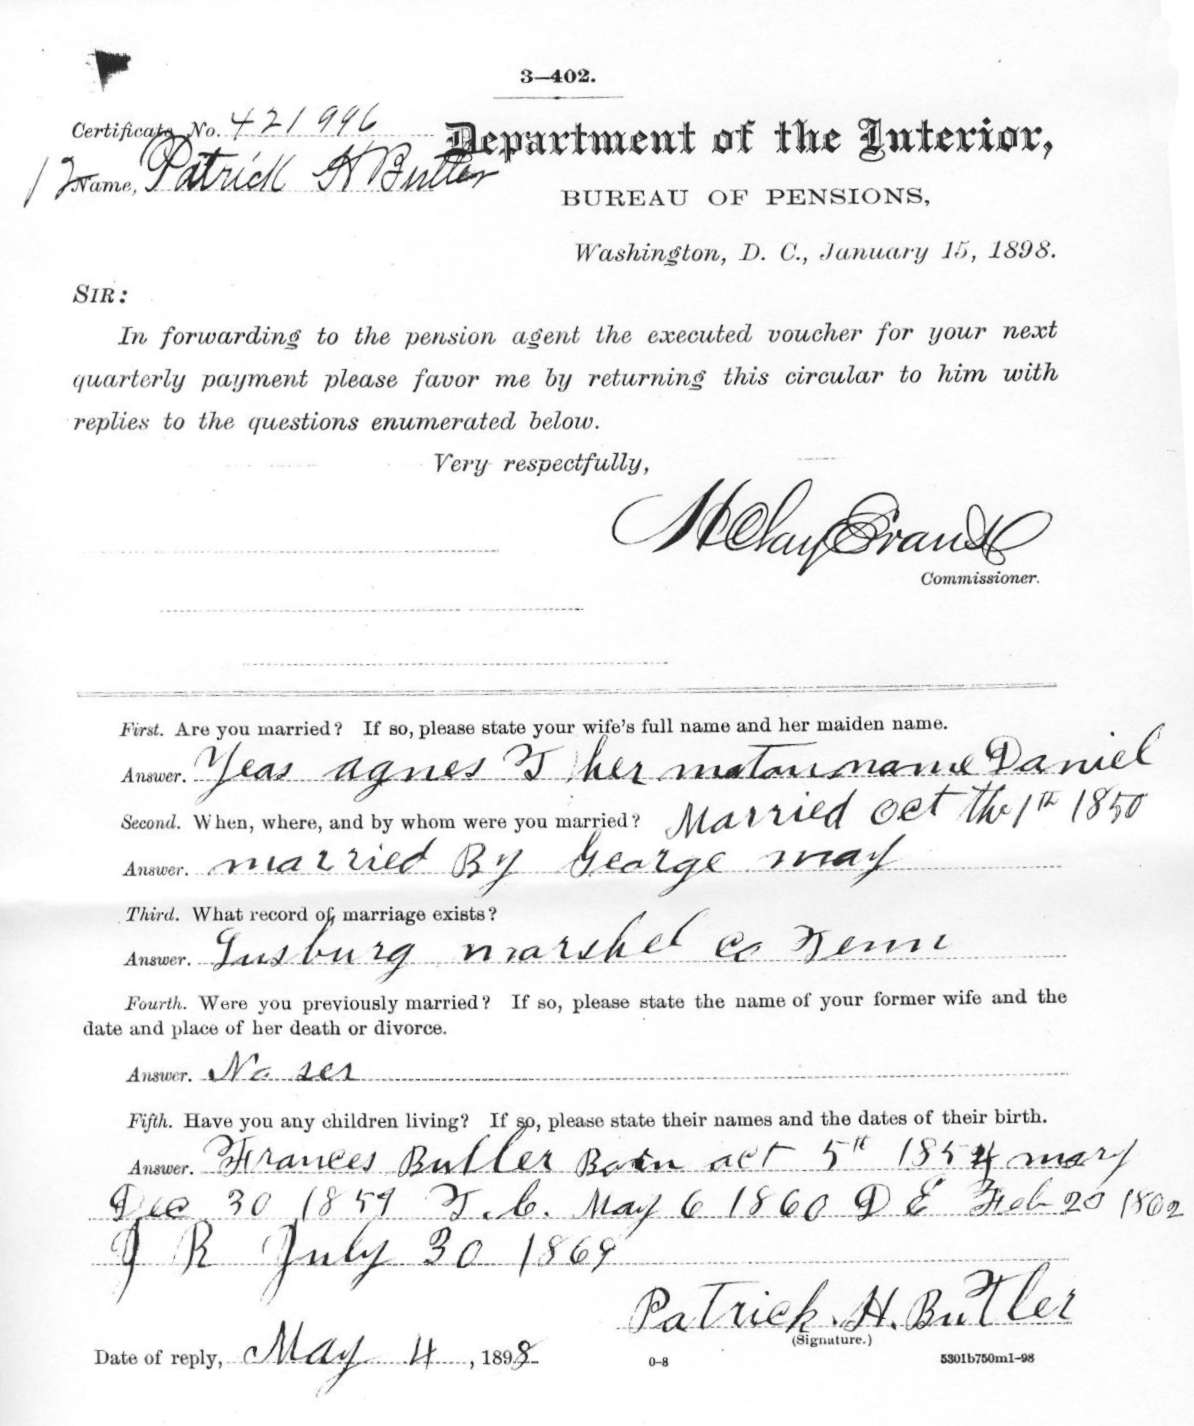 3—402.
Certificate No. 421996
Department of the Interior,
12 Name, Patrick H Butler
BUREAU OF PENSIONS,
Washington, D. C., January 15, 1898.
SIR:
In forwarding to the pension agent the executed voucher for your next
quarterly payment please favor me by returning this circular to him with
replies to the questions enumerated below.
Very respectfully,
H Clay Evans
Commissioner.
First. Are you married? If so, please state your wife's full name and her maiden name.
Answer. Yeas agnes T her matan name Daniel
Second. When, where, and by whom were you married? Married oct the 1th 1850
Answer. married By George may
Third. What record of marriage exists?
Answer. Lusburg marshel co Tenn
Fourth. Were you previously married? If so, please state the name of your former wife and the
date and place of her death or divorce.
Answer. No ser
Fifth. Have you any children living? If so, please state their names and the dates of their birth.
Answer. Frances Butler Born oct 5th 1854 mary
Dec 30 1859 T. C. May 6 1860 D E Feb 20 1862
J R July 30 1869
Patrick. H. Butler
(Signature.)
Date of reply, May 4, 1898
0-8
5301b750m1-98